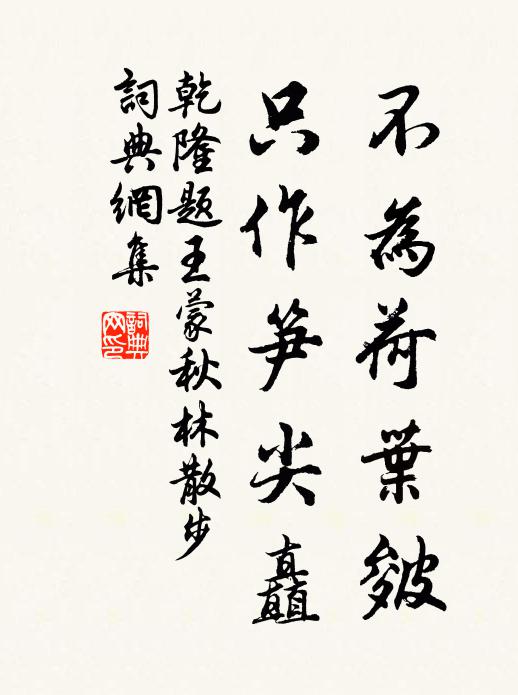 不為荷葉皴
只作笋尖矗
乾隆題王蒙秋林散步
詞典網集
詞典網印